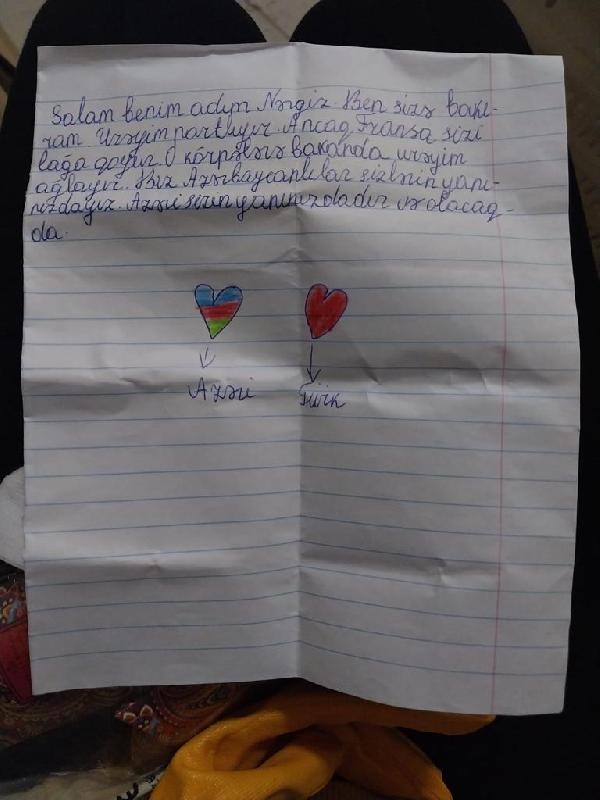 Salam benim adım Nərgiz. Ben sizə bakı-
ram Urəyim partlıyır. Ancag Fransa sizi
lağa qoyur O körpələrə bakanda urəyim
ağlayır. Biz Azərbaycanlılar sizlərin yanı-
nızdayız. Azəri sizin yanınızdadır və olacag-
da.
Azəri
Türk